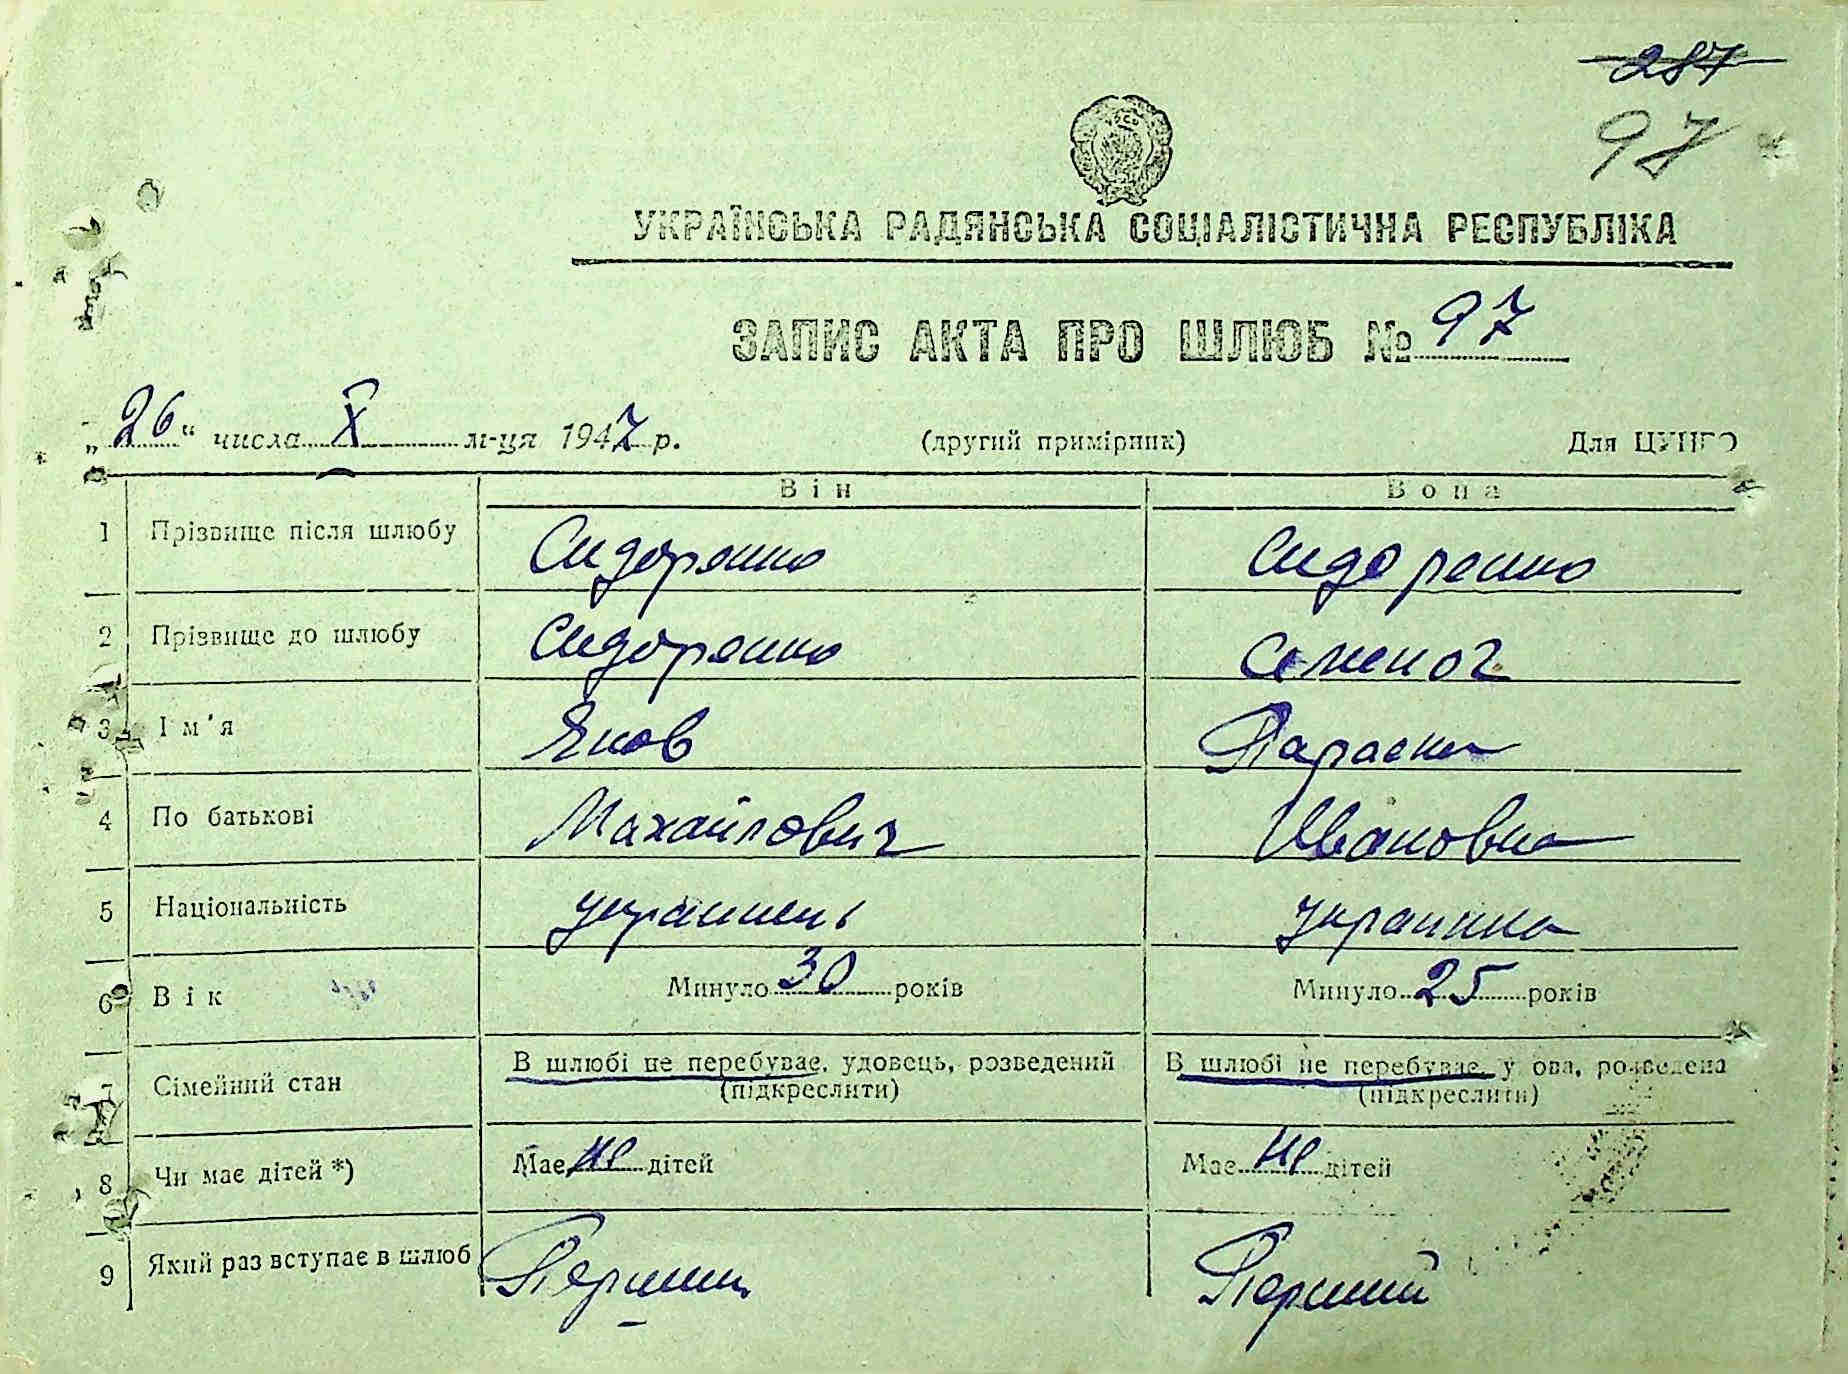 287
97
УКРАЇНСЬКА РАДЯНСЬКА СОЦІАЛІСТИЧНА РЕСПУБЛІКА
ЗАПИС АКТА ПРО ШЛЮБ № 97
„26“ числа X м-ця 1947 р. (другий примірник) Для ЦУНГО
Він Вона
1 Прізвище після шлюбу Сидоренко Сидоренко
2 Прізвище до шлюбу Сидоренко Семеног
3 Ім'я Яков Параска
4 По батькові Михайлович Ивановна
5 Національність украинець украинка
6 Вік Минуло 30 років Минуло 25 років
7 Сімейний стан В шлюбі не перебуває, удовець, розведений В шлюбі не перебуває, у ова, розведена
(підкреслити) (підкреслити)
8 Чи має дітей *) Має не дітей Має не дітей
9 Який раз вступає в шлюб Перший Перший